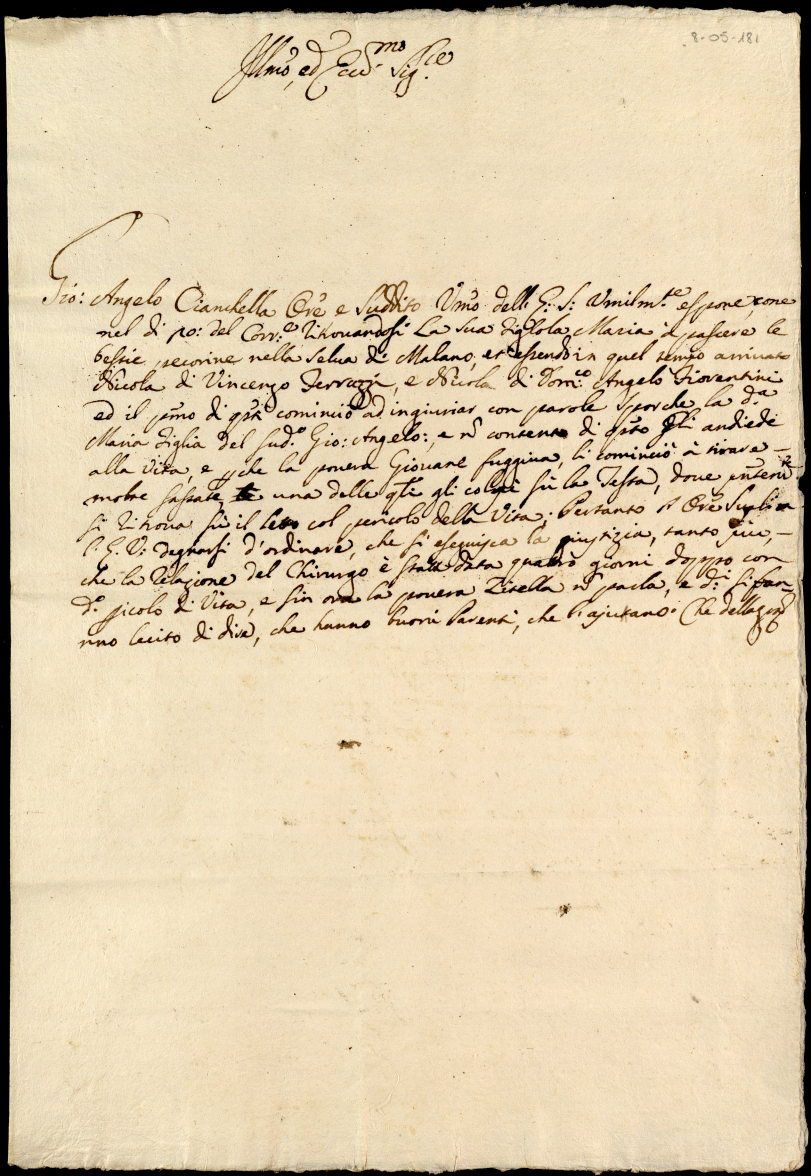 8-05-181
Illmo, ed Eccmo Sigre
Gio: Angelo Cianchella Ore e Suddito Umo dell: E: S: Umilmte espone, come
nel di po: del Corre ritrovandosi la sua figliola Maria à pascere le
bestie pecorine nella Selva di Malano, et essendo in quel tempo arrivato
Nicola di Vincenzo Ferruzzi, e Nicola di Domco Angelo Fiorentini
ed il pmo di qsti cominciò ad ingiuriar con parole sporche la da
Maria figlia del sudo Gio: Angelo:, e nò contento di qsto gli andiede
alla vita, e pche la povera Giovane fuggiva, li cominciò à tirare
molte sassate una delle qli gli colpì sù la Testa, dove
si ritrova sù il letto col pericolo della Vita; Pertanto l'Ore Supplica
l: E: V: degnarsi d'ordinare, che si eseguisca la giustizia, tanto più,
che la relazione del Chirurgo è stata data quattro giorni doppo con
do picolo di Vita, e sin ora la povera Zitella nò parla, e di si fan-
nno lecito di dire, che hanno buoni Parenti, che l'ajutano. Che della